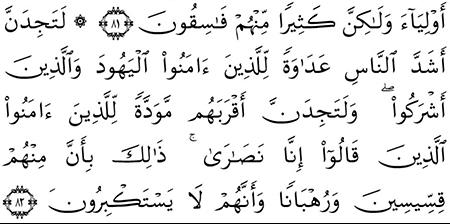 أَوْلِيَآءَ وَلَٰكِنَّ كَثِيرًا مِّنْهُمْ فَٰسِقُونَ ﴿٨١﴾ ۞ لَتَجِدَنَّ
أَشَدَّ ٱلنَّاسِ عَدَٰوَةً لِّلَّذِينَ ءَامَنُوا۟ ٱلْيَهُودَ وَٱلَّذِينَ
أَشْرَكُوا۟ ۖ وَلَتَجِدَنَّ أَقْرَبَهُم مَّوَدَّةً لِّلَّذِينَ ءَامَنُوا۟
ٱلَّذِينَ قَالُوٓا۟ إِنَّا نَصَٰرَىٰ ۚ ذَٰلِكَ بِأَنَّ مِنْهُمْ
قِسِّيسِينَ وَرُهْبَانًا وَأَنَّهُمْ لَا يَسْتَكْبِرُونَ ﴿٨٢﴾